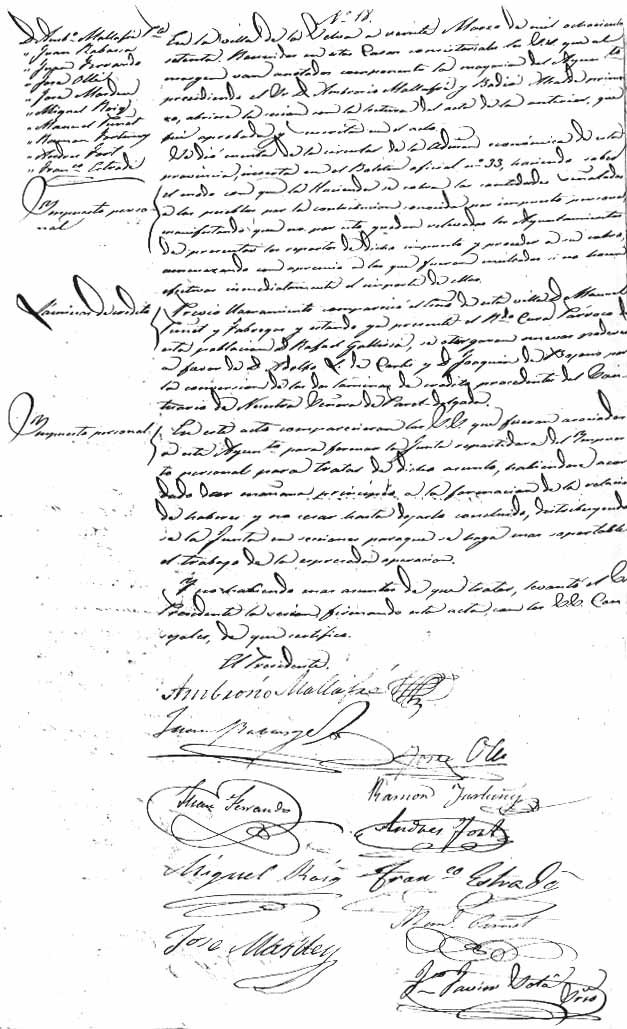 Nº 18.
D. Ambº Mallafré Pte
" Juan Rabasa
" Juan Ferrando
" José Ollé
" José Mardeu
" Miguel Roig
" Manuel
" Ramon
" Andres Fort
" Franco Estrada
En la villa de la Selva a veinte Marzo de mil ochocientos
setenta. Reunidos en estas Casas consistoriales los SS. que al
margen van anotados componente la mayoria del Ayunto
presidiendo el Sr. D. Ambrosio Mallafré y Badia Alcalde prime
ro, abriose la sesion con la lectura del acta de la anterior, que
fué aprobada y suscrita en el acto.
Impuesto perso
nal
Se dió cuenta de la circular de la Admon económica de esta
provincia, inserta en el Boletin oficial nº 33, haciendo saber
el modo con que la Hacienda se cobra las cantidades señaladas
a los pueblos por la contribucion conocida por impuesto personal
manifestando que no por esto quedan relevados los Ayuntamientos
de presentar los repartos de dicho impuesto y proceder a su cobro,
amenazando con apremio a los que fueran
efectivas inmediatamente el importe de ellas.
Láminas de crédito
Previo llamamiento compareció el de esta villa D. Manuel
y Fabregas y estando ya presente el Rdo Cura Párroco de
esta poblacion D. Rafael Gallissá, se otorgaron nuevos poderes
a favor de D. Adolfo de Carlo y D. Joaquin de por
la conversion de las dos láminas de credito procedentes del San
tuario de Nuestra Señora de Paret delgada.
Impuesto personal
En este acto comparecieron los SS. que fueron asociados
a este Ayunto para formar la Junta repartidora del Impues
to personal para tratar de dicho asunto, habiendose acor
dado dar mañana principio a la formacion de la relacion
de haberes y no cesar hasta dejarla concluida, distribuyendo
se la Junta en secciones para que se haga mas soportable
el trabajo de la expresada operacion.
Y no habiendo mas asuntos de que tratar, levantó el Sr
Presidente la sesion firmando esta acta, con los SS. Con
cejales, de que certifico.
El Presidente.
Ambrosio Mallafré
Juan
José Olle
Juan Ferrando
Ramon
Andres Fort
Miguel Roig
Franco Estrada
José Mardeu
Manl
Javier Srio